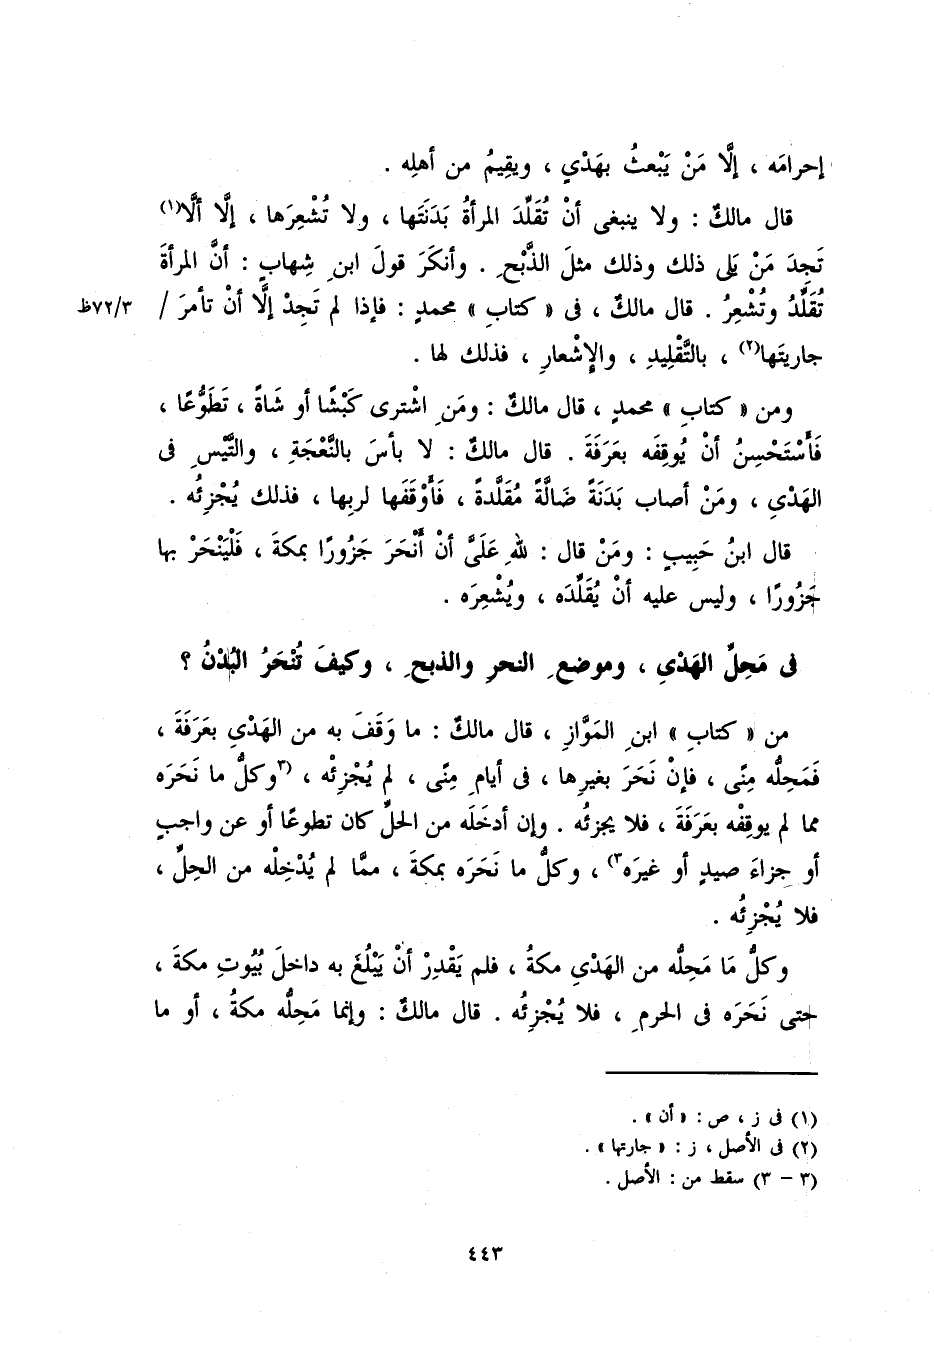 إحرامَه ، إلَّا مَنْ يَبْعثُ بهَدْىٍ ، ويقِيمُ من أهلِه .
قال مالكٌ : ولا ينبغى أنْ تُقَلِّدَ المرأةُ بَدَنَتَها ، ولا تُشْعِرَها ، إلَّا ألَّا(١)
تَجِدَ مَنْ يَلِى ذلك وذلك مثلَ الذَّبْحِ . وأنكَرَ قولَ ابنِ شِهابٍ : أنَّ المرأةَ
تُقَلِّدُ وتُشْعِرُ . قال مالكٌ ، فى « كتابِ » محمدٍ : فإذا لم تَجِدْ إلَّا أنْ تأمرَ / ٧٢/٣ظ
جاريتَها(٢) ، بالتَّقْلِيدِ ، والإِشْعارِ ، فذلك لها .
ومن « كتابِ » محمدٍ ، قال مالكٌ : ومَنِ اشْترى كَبْشًا أو شَاةً ، تَطَوُّعًا ،
فَأَسْتَحْسِنُ أنْ يُوقِفَه بعَرَفَةَ . قال مالكٌ : لا بأسَ بالنَّعْجَةِ ، والتَّيْسِ فى
الهَدْىِ ، ومَنْ أصاب بَدَنَةً ضَالَّةً مُقَلَّدةً ، فَأَوْقَفَها لربِها ، فذلك يُجْزِئُه .
قال ابنُ حَبِيبٍ : ومَنْ قال : للهِ عَلَىَّ أنْ أَنْحَرَ جَزُورًا بمكةَ ، فَلْيَنْحَرْ بها
جَزُورًا ، وليس عليه أنْ يُقَلِّدَه ، ويُشْعِرَه .
فى مَحِلِّ الهَدْىِ ، وموضعِ النحرِ والذبحِ ، وكيفَ تُنْحَرُ البُدْنُ ؟
من « كتابِ » ابنِ المَوَّازِ ، قال مالكٌ : ما وَقَفَ به من الهَدْىِ بعَرَفَةَ ،
فَمَحِلُّه مِنًى ، فإنْ نَحَرَ بغيرِها ، فى أيامِ مِنًى ، لم يُجْزِئْه ، (٣وكلُّ ما نَحَرَه
مما لم يوقِفْه بعَرَفَةَ ، فلا يجزئُه . وإن أدخَلَه من الحلِّ كان تطوعًا أو عن واجبٍ
أو جزاءَ صيدٍ أو غيرَه٣) ، وكلُّ ما نَحَرَه بمكةَ ، ممَّا لم يُدْخِلْه من الحِلِّ ،
فلا يُجْزِئُه .
وكلُّ مَا مَحِلُّه من الهَدْىِ مكةُ ، فلم يَقْدِرْ أنْ يَبْلُغَ به داخلَ بُيُوتِ مكةَ ،
حتى نَحَرَه فى الحرمِ ، فلا يُجْزِئُه . قال مالكٌ : وإنما مَحِلُّه مكةُ ، أو ما
(١) فى ز ، ص : « أن » .
(٢) فى الأصل ، ز : « جارتها » .
(٣ – ٣) سقط من : الأصل .
٤٤٣